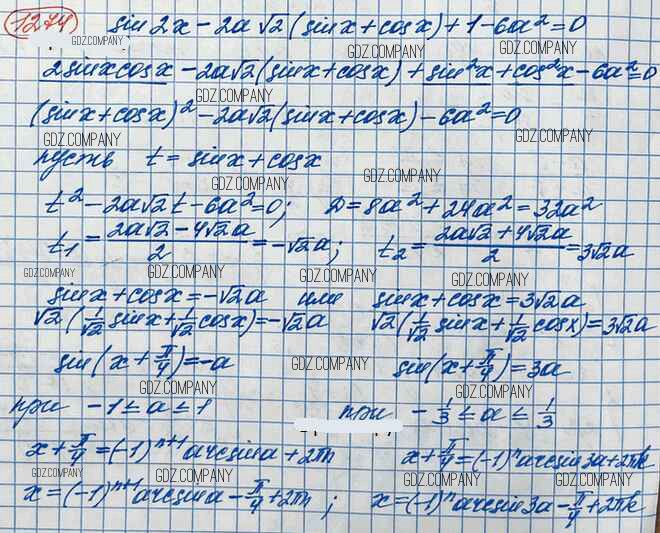 1274 sin 2x - 2a√2 (sinx + cosx) + 1 - 6a² = 0
GDZ.COMPANY GDZ.COMPANY
2sinxcosx - 2a√2(sinx+cosx) + sin²x + cos²x - 6a² = 0
GDZ.COMPANY
(sinx+cosx)² - 2a√2(sinx+cosx) - 6a² = 0
GDZ.COMPANY GDZ.COMPANY
пусть t = sinx + cosx
GDZ.COMPANY GDZ.COMPANY
t² - 2a√2t - 6a² = 0; D = 8a² + 24a² = 32a²
t₁ = (2a√2 - 4√2a)/2 = -√2a; t₂ = (2a√2 + 4√2a)/2 = 3√2a
GDZ.COMPANY GDZ.COMPANY GDZ.COMPANY GDZ.COMPANY
sinx + cosx = -√2a или sinx + cosx = 3√2a
√2(1/√2 sinx + 1/√2 cosx) = -√2a √2(1/√2 sinx + 1/√2 cosx) = 3√2a
GDZ.COMPANY GDZ.COMPANY
sin(x + π/4) = -a GDZ.COMPANY sin(x + π/4) = 3a
GDZ.COMPANY GDZ.COMPANY
при -1 ≤ a ≤ 1 при -1/3 ≤ a ≤ 1/3
GDZ.COMPANY GDZ.COMPANY
x + π/4 = (-1)ⁿ⁺¹ arcsin a + 2πn x + π/4 = (-1)ⁿ arcsin 3a + 2πk
GDZ.COMPANY GDZ.COMPANY GDZ.COMPANY
x = (-1)ⁿ⁺¹ arcsin a - π/4 + 2πn; x = (-1)ⁿ arcsin 3a - π/4 + 2πk